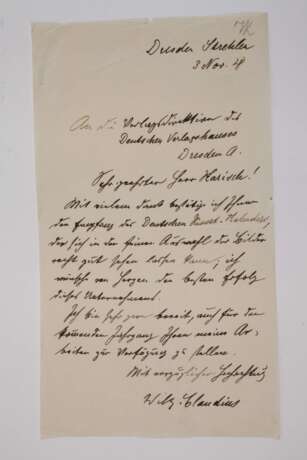 Dresden Strehlen
3 Nov.
An die Verlagsdirektion des
Deutschen Verlagshauses
Dresden A.
Sehr geehrter Herr Harisch!
Mit vielem Dank bestätige ich Ihnen
den Empfang des Deutschen Kunst-Kalenders,
der sich in der feinen Auswahl der Bilder
recht gut sehen lassen kann; ich
wünsche von Herzen den besten Erfolg
dieses Unternehmens.
Ich bin sehr gern bereit, auch für den
kommenden Jahrgang Ihnen meine Ar-
beiten zur Verfügung zu stellen.
Mit vorzüglicher Hochachtung
Wilh. Claudius